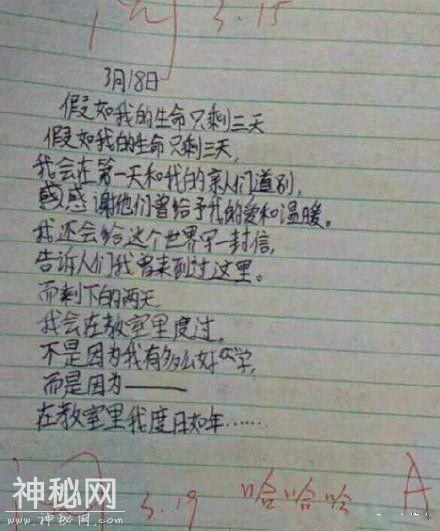 阅 3.15
3月18日
假如我的生命只剩三天
假如我的生命只剩三天,
我会在第一天和我的亲人们道别,
感谢他们曾给予我的爱和温暖。
我还会给这个世界写一封信,
告诉人们我曾来到过这里。
而剩下的两天
我会在教室里度过,
不是因为我有多么好学,
而是因为——
在教室里我度日如年……
3.19 哈哈哈 A
神秘网
www.shenmw.com